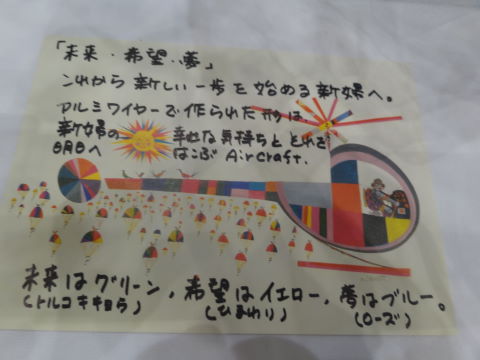 「未来・希望・夢」
これから新しい一歩を始める新婦へ。
アルミワイヤーで作られた形は、
新婦の幸せな気持ちをとれで
明日へはこぶ Aircraft.
未来はグリーン、希望はイエロー、夢はブルー。
(トルコキキョウ) (ひまわり) (ローズ)